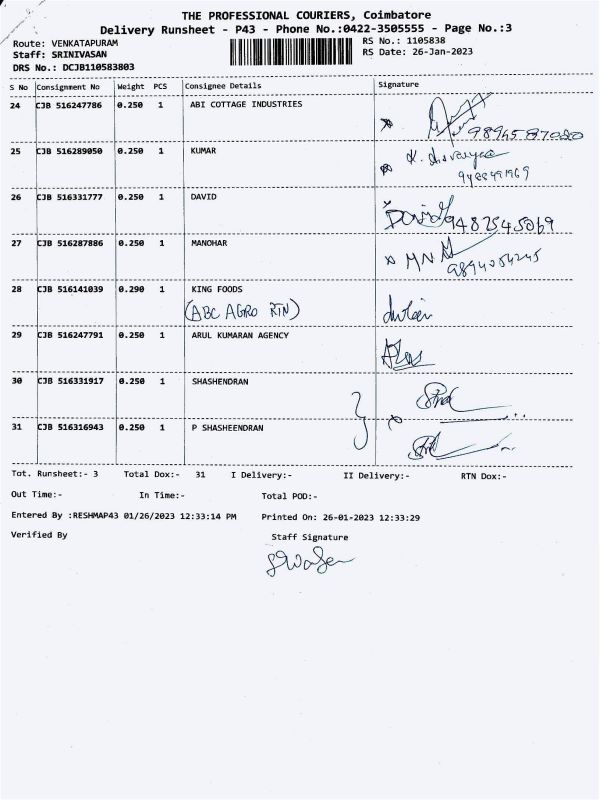 THE PROFESSIONAL COURIERS, Coimbatore
Delivery Runsheet - P43 - Phone No.:0422-3505555 - Page No.:3
Route: VENKATAPURAM RS No.: 1105838
Staff: SRINIVASAN RS Date: 26-Jan-2023
DRS No.: DCJB110583803
S No Consignment No Weight PCS Consignee Details Signature
24 CJB 516247786 0.250 1 ABI COTTAGE INDUSTRIES
25 CJB 516289050 0.250 1 KUMAR
26 CJB 516331777 0.250 1 DAVID David 9487545069
27 CJB 516287886 0.250 1 MANOHAR
28 CJB 516141039 0.290 1 KING FOODS
(ABC AGRO RTN)
29 CJB 516247791 0.250 1 ARUL KUMARAN AGENCY
30 CJB 516331917 0.250 1 SHASHENDRAN
31 CJB 516316943 0.250 1 P SHASHEENDRAN
Tot. Runsheet:- 3 Total Dox:- 31 I Delivery:- II Delivery:- RTN Dox:-
Out Time:- In Time:- Total POD:-
Entered By :RESHMAP43 01/26/2023 12:33:14 PM Printed On: 26-01-2023 12:33:29
Verified By Staff Signature